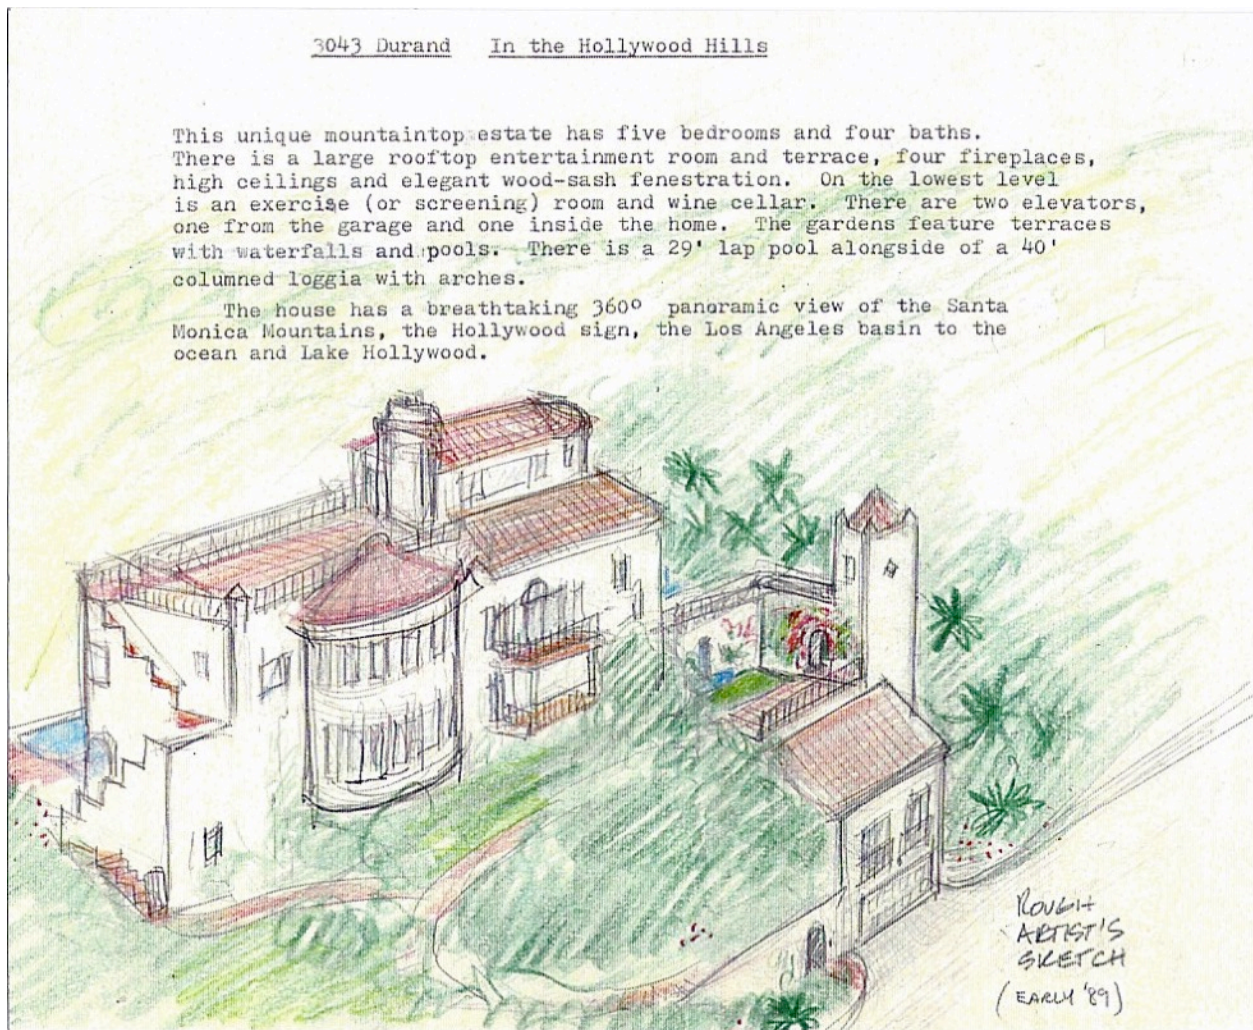 3043 Durand In the Hollywood Hills
This unique mountaintop estate has five bedrooms and four baths.
There is a large rooftop entertainment room and terrace, four fireplaces,
high ceilings and elegant wood-sash fenestration. On the lowest level
is an exercise (or screening) room and wine cellar. There are two elevators,
one from the garage and one inside the home. The gardens feature terraces
with waterfalls and pools. There is a 29' lap pool alongside of a 40'
columned loggia with arches.
The house has a breathtaking 360° panoramic view of the Santa
Monica Mountains, the Hollywood sign, the Los Angeles basin to the
ocean and Lake Hollywood.
ROUGH
ARTIST'S
SKETCH
(EARLY '89)